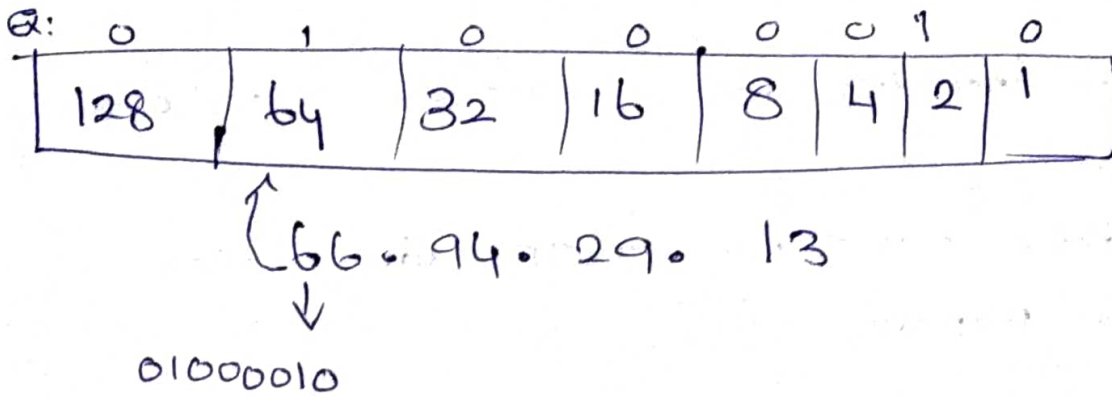 Q: 0 1 0 0 0 0 1 0
128 64 32 16 8 4 2 1
66. 94. 29. 13
01000010